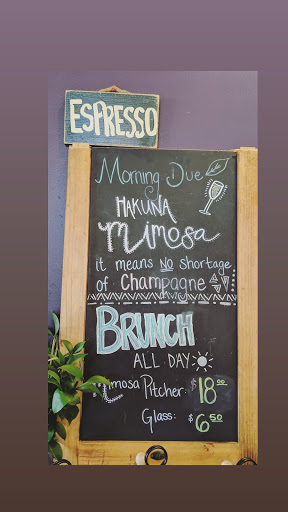 ESPRESSO
Morning Due
HAKUNA
mimosa
it means NO shortage
of Champagne
BRUNCH
ALL DAY
mimosa Pitcher: $18.00
Glass: $6.50